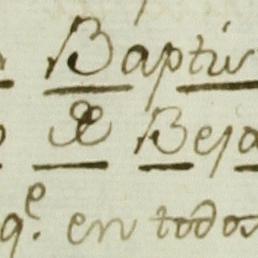 Baptis
de Beja
qe. en todos